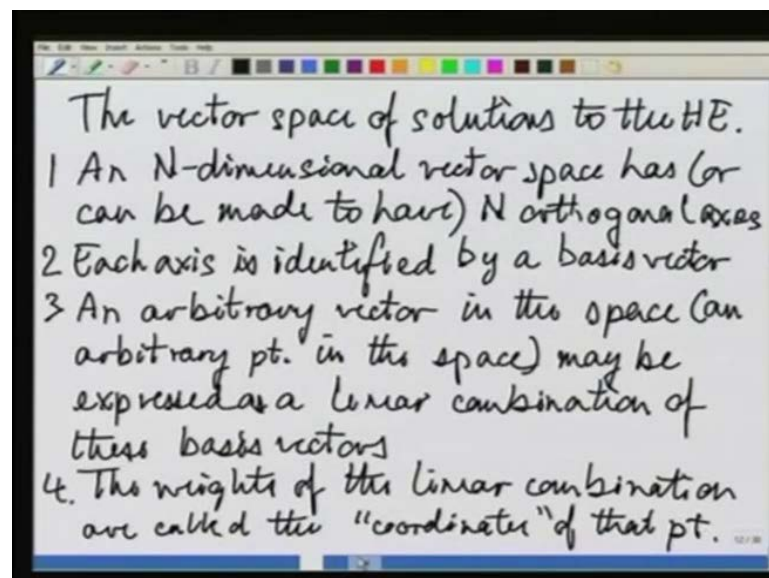 File Edit View Insert Actions Tools Help
B I
The vector space of solutions to the HE.
1 An N-dimensional vector space has (or
can be made to have) N orthogonal axes
2 Each axis is identified by a basis vector
3 An arbitrary vector in the space (an
arbitrary pt. in the space) may be
expressed as a linear combination of
these basis vectors
4. The weights of the linear combination
are called the "coordinates" of that pt.
12/30